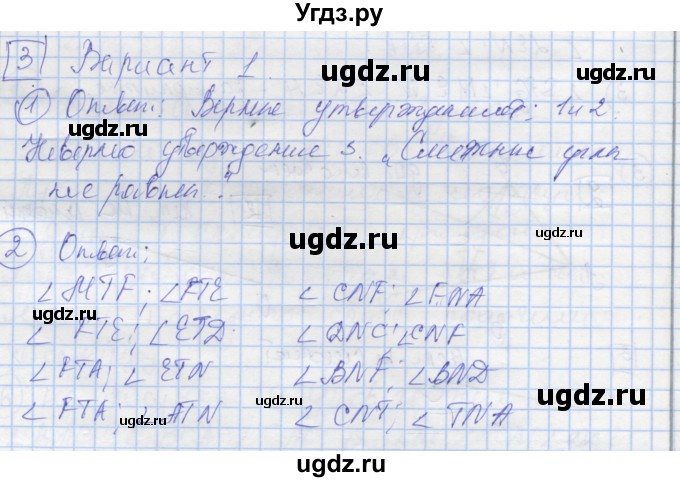 Угдз.ру
3 Вариант 1.
ugdz.ru
ugdz.ru
1 Ответ: Верные утверждения: 1 и 2.
ugdz.ru
Неверно утверждение 3. „Смежные углы
не равны."
ugdz.ru
ugdz.ru
2 Ответ:
∠MTF; ∠FTE ∠CNF; ∠FNA
ugdz.ru
∠FTE; ∠ETD ∠DNC; ∠CNF
ugdz.ru
∠FTA; ∠ETN ∠BNF; ∠BND
∠FTA; ∠ATN ∠CNT; ∠TNA
ugdz.ru
ugdz.ru
ugdz.ru